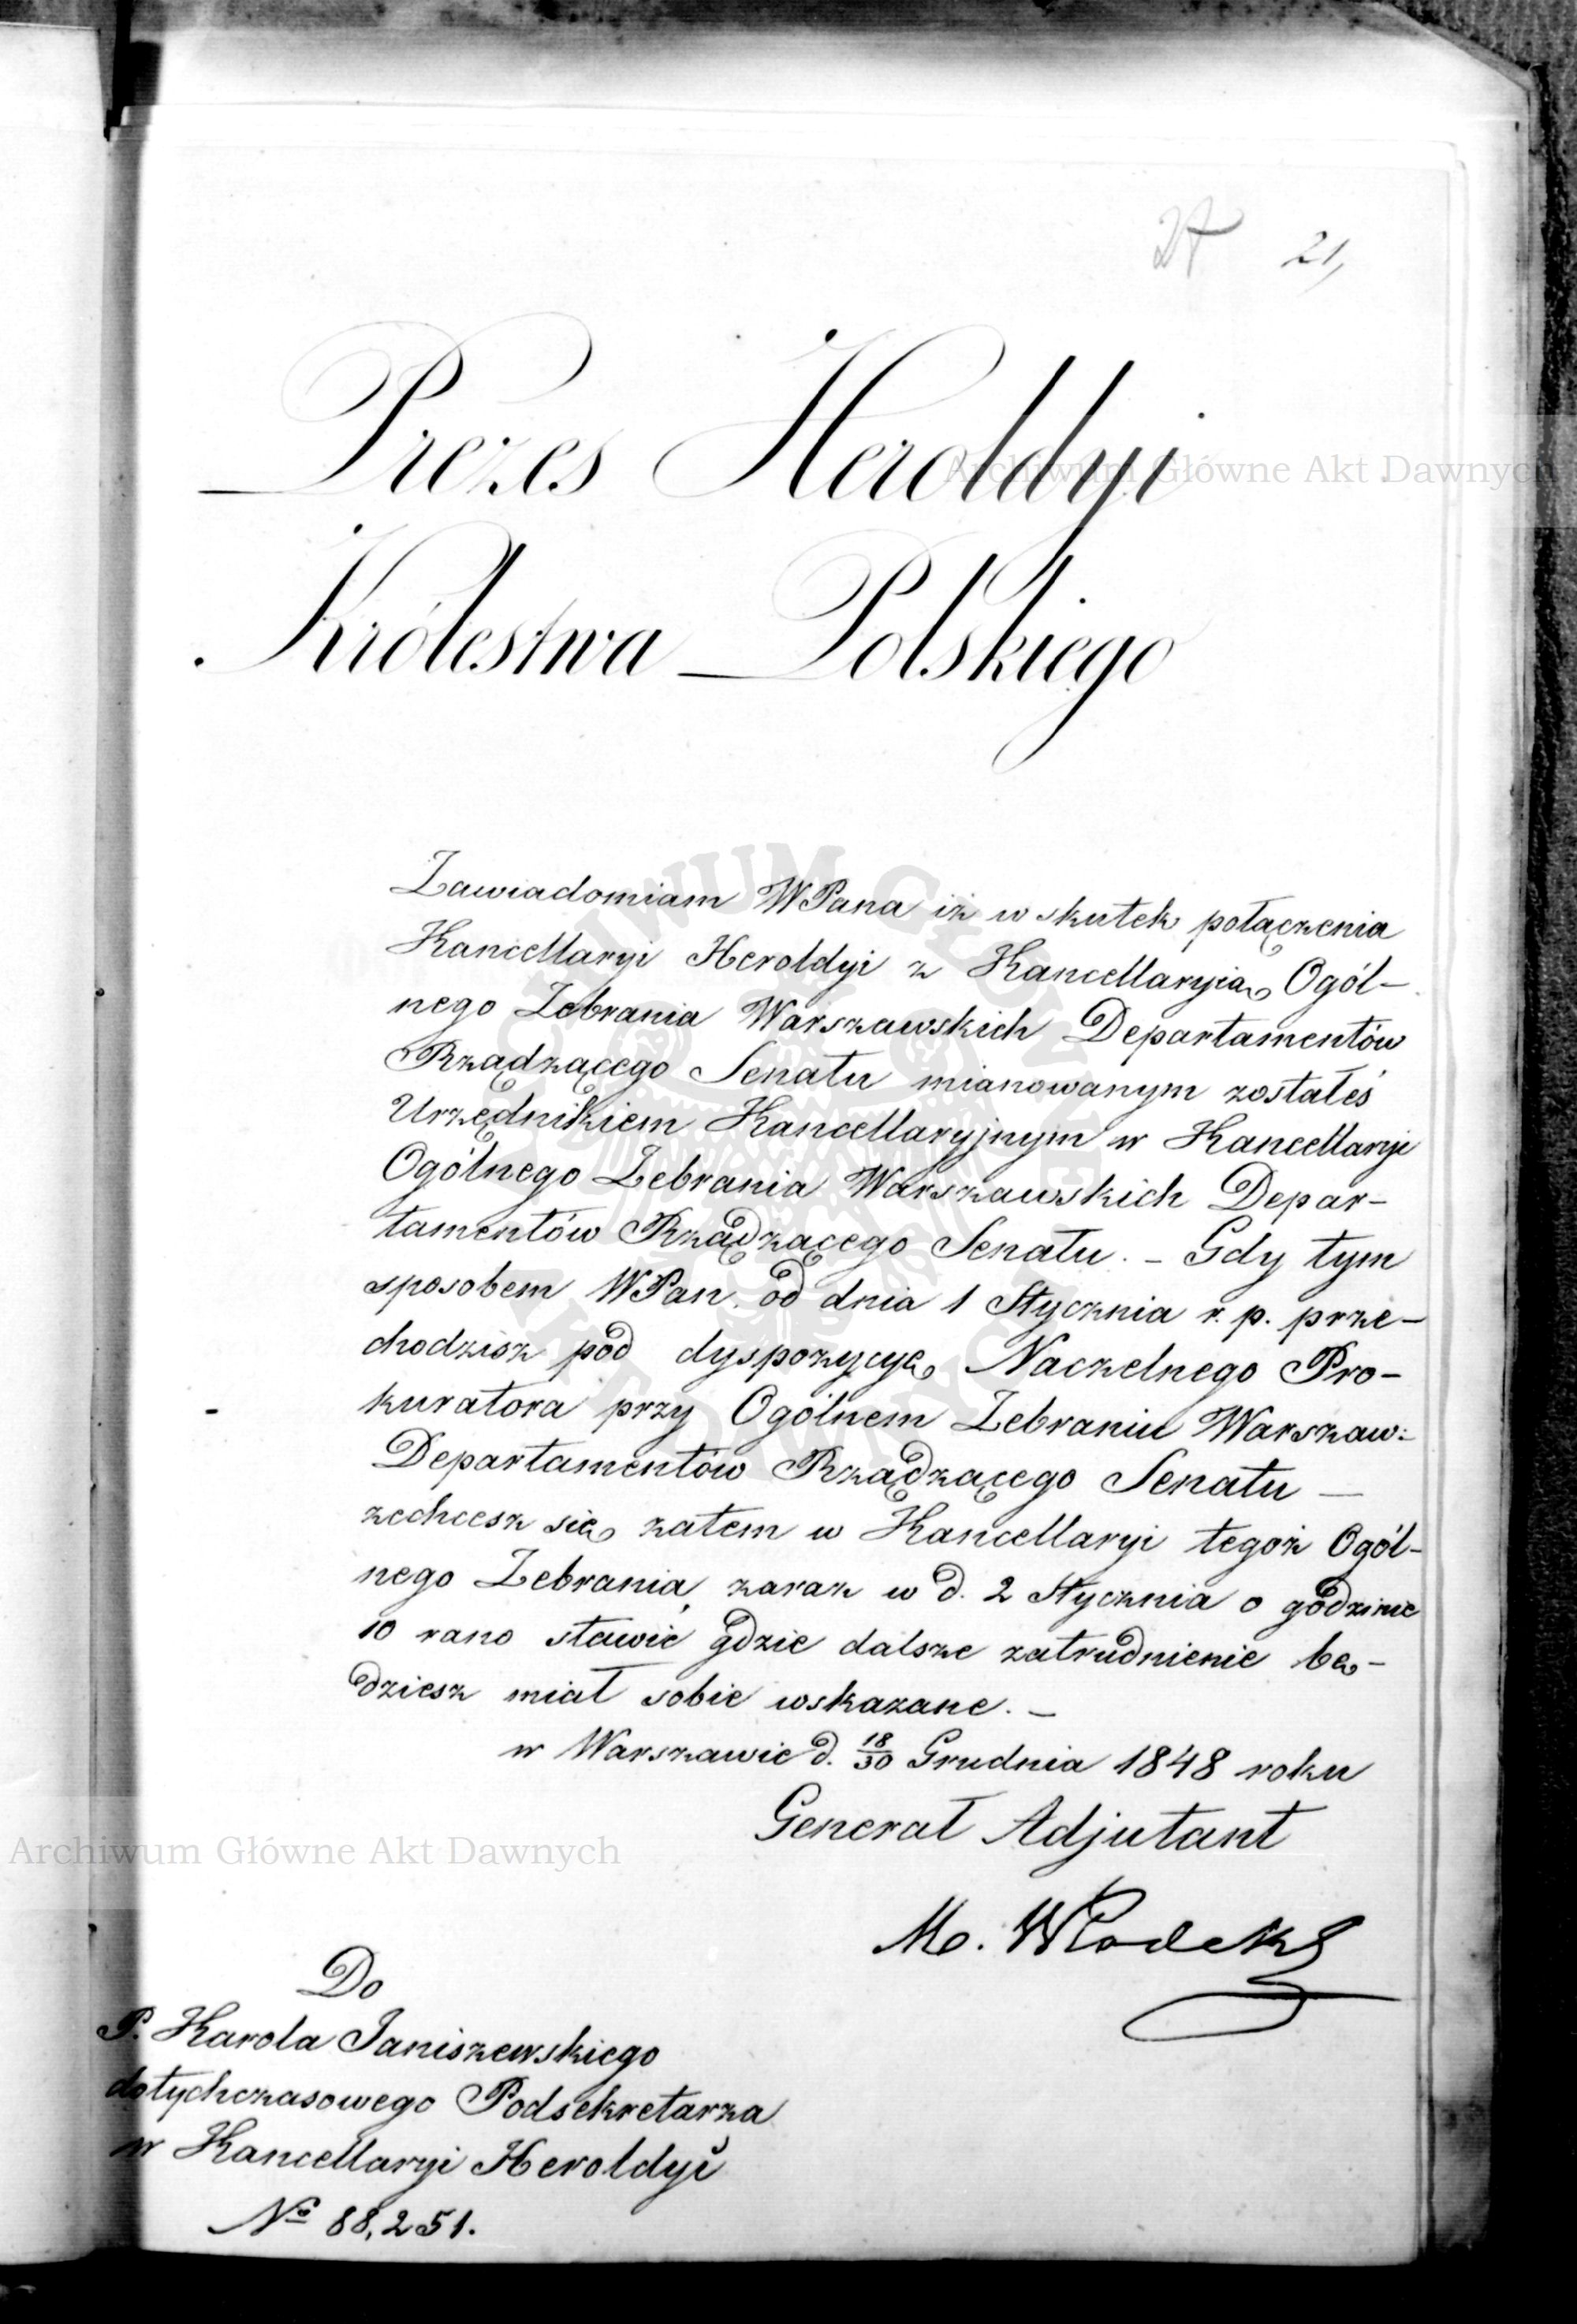 21,
Prezes Heroldyi
Królestwa Polskiego
Zawiadomiam WPana iż w skutek połączenia
Kancellaryi Heroldyi z Kancellaryią Ogól-
nego Zebrania Warszawskich Departamentów
Rządzącego Senatu mianowanym zostałeś
Urzędnikiem Kancellaryjnym w Kancellaryi
Ogólnego Zebrania Warszawskich Depar-
tamentów Rządzącego Senatu. - Gdy tym
sposobem WPan od dnia 1 Stycznia r. p. prze-
chodzisz pod dyspozycyę Naczelnego Pro-
kuratora przy Ogólnem Zebraniu Warszaw:
Departamentów Rządzącego Senatu —
zechcesz się zatem w Kancellaryi tegoż Ogól-
nego Zebrania, zaraz w d. 2 Stycznia o godzinie
10 rano stawić gdzie dalsze zatrudnienie bę-
dziesz miał sobie wskazane. -
w Warszawie d. 18/30 Grudnia 1848 roku
Generał Adjutant
M. Włodek
Do
P. Karola Janiszewskiego
dotychczasowego Podsekretarza
w Kancellaryi Heroldyi
No 88,251.
Archiwum Główne Akt Dawnych
Archiwum Główne Akt Dawnych
ARCHIWUM GŁÓWNE AKT DAWNYCH